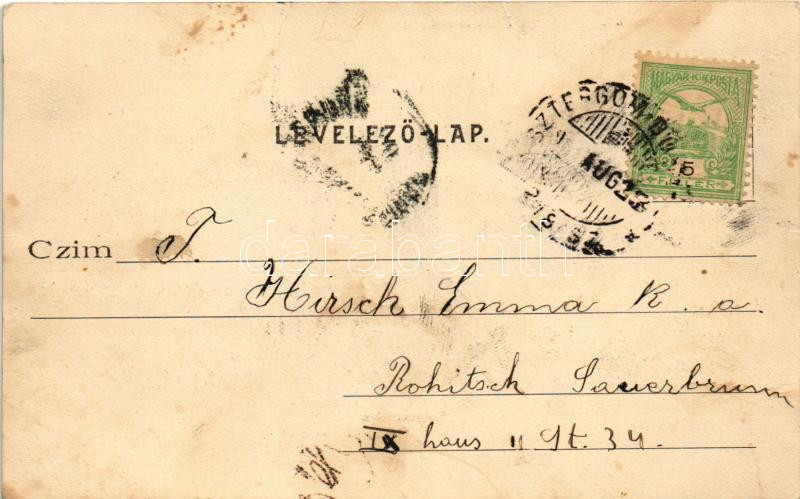 MAGYAR KIR. POSTA
5
FILLER
AUG 23
LEVELEZŐ-LAP.
Czim T.
Hirsch Emma k. a.
Rohitsch Sauerbrunn
IX haus II St. 34.
darabanth